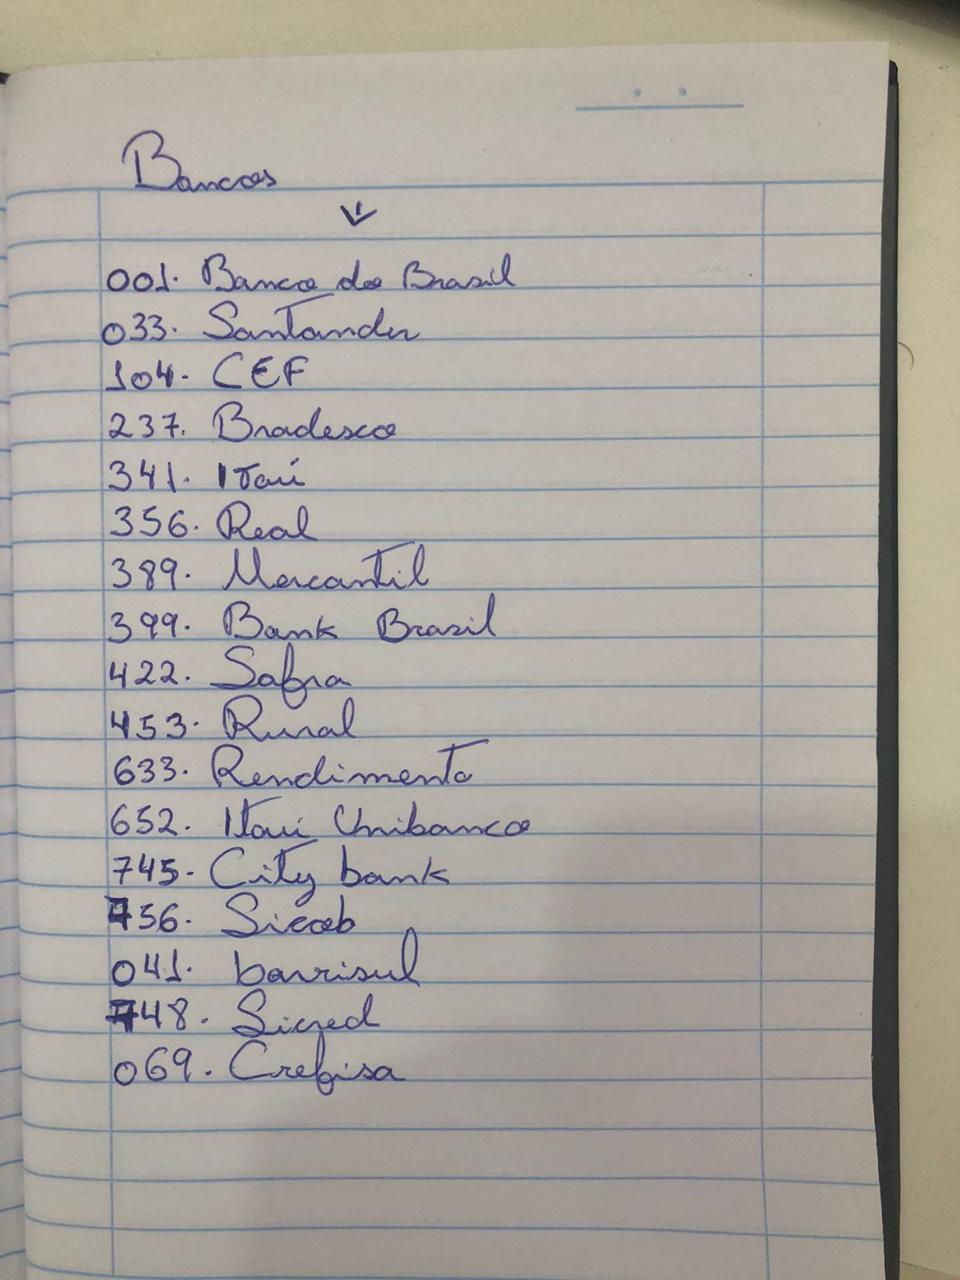 Bancos
001. Banco do Brasil
033. Santander
104. CEF
237. Bradesco
341. Itaú
356. Real
389. Mercantil
399. Bank Brasil
422. Safra
453. Rural
633. Rendimento
652. Itaú Unibanco
745. City bank
756. Sicoob
041. banrisul
748. Sicred
069. Crefisa